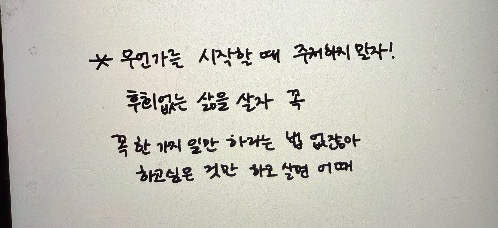 * 무언가를 시작할 때 주저하지 말자!
후회없는 삶을 살자 꼭
꼭 한 가지 일만 하라는 법 없잖아
하고싶은 것만 하고 살면 어때